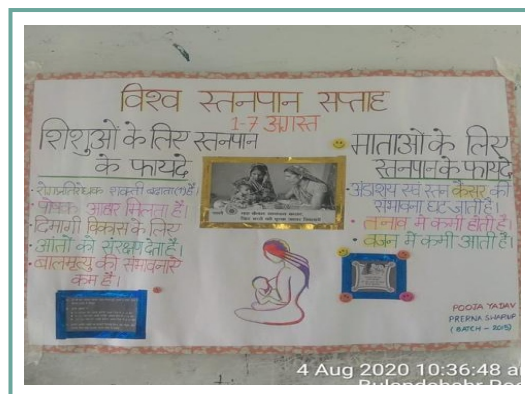 विश्व स्तनपान सप्ताह
1-7 अगस्त
शिशुओ के लिए स्तनपान
के फायदे
रोगप्रतिरोधक शक्ती बढाता है।
पोषक आहार मिलता है।
दिमागी विकास के लिए
आंतो को संरक्षण देता है।
बालमृत्यु की संभावनाऐ
कम है।
माताओ के लिए
स्तनपान के फायदे
अंडाशय एवं स्तन कैंसर की
संभावना घट जाती है।
तनाव मे कमी होती है।
वजन मे कमी आती है।
POOJA YADAV
PRERNA SHARMA
(BATCH - 2015)
4 Aug 2020 10:36:48 a